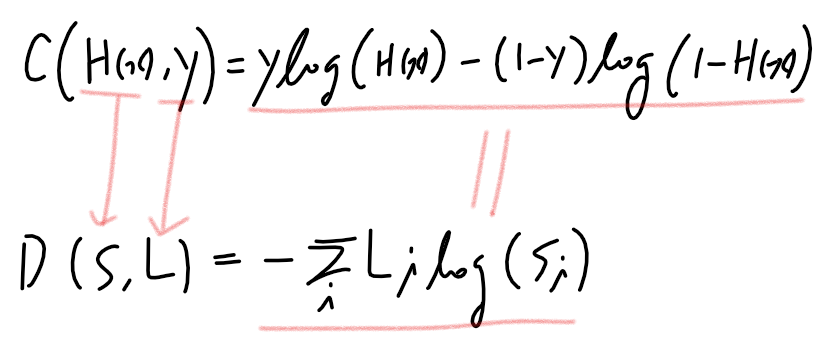 C(H(x), y) = y log(H(x)) - (1-y) log(1-H(x))
D(S, L) = - Σ_i L_i log(S_i)